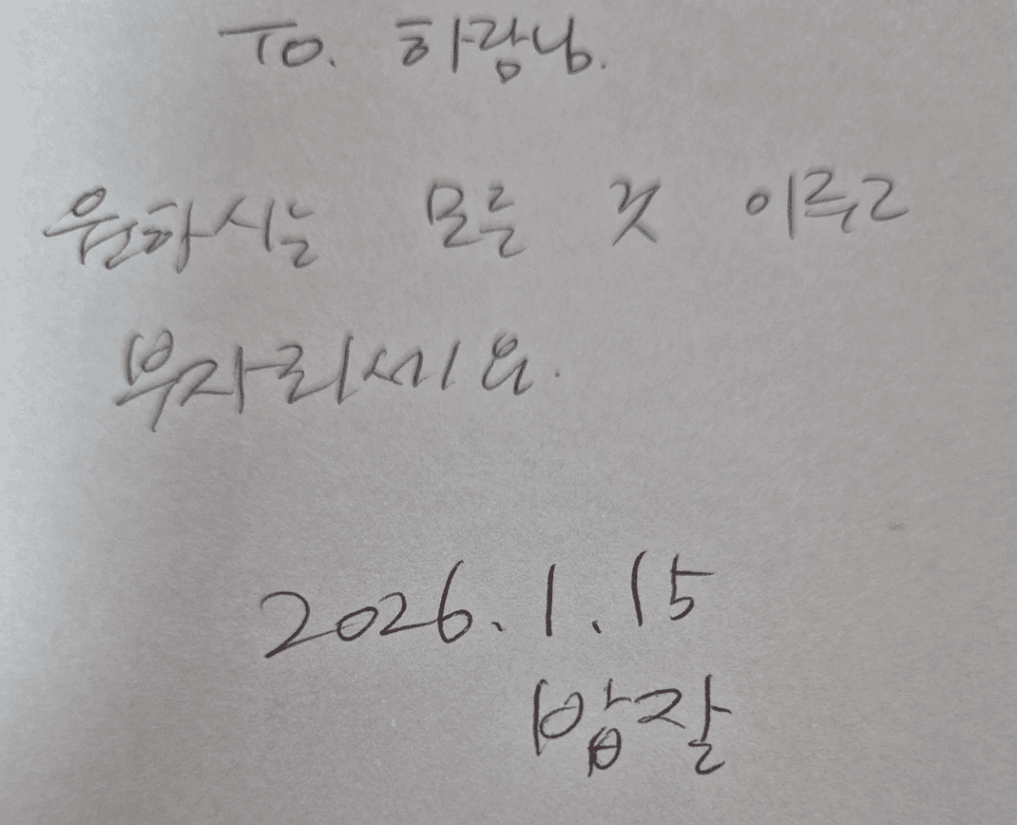 To. 하람님.
원하시는 모든 것 이루고
부자되세요.
2026. 1. 15
밥잘